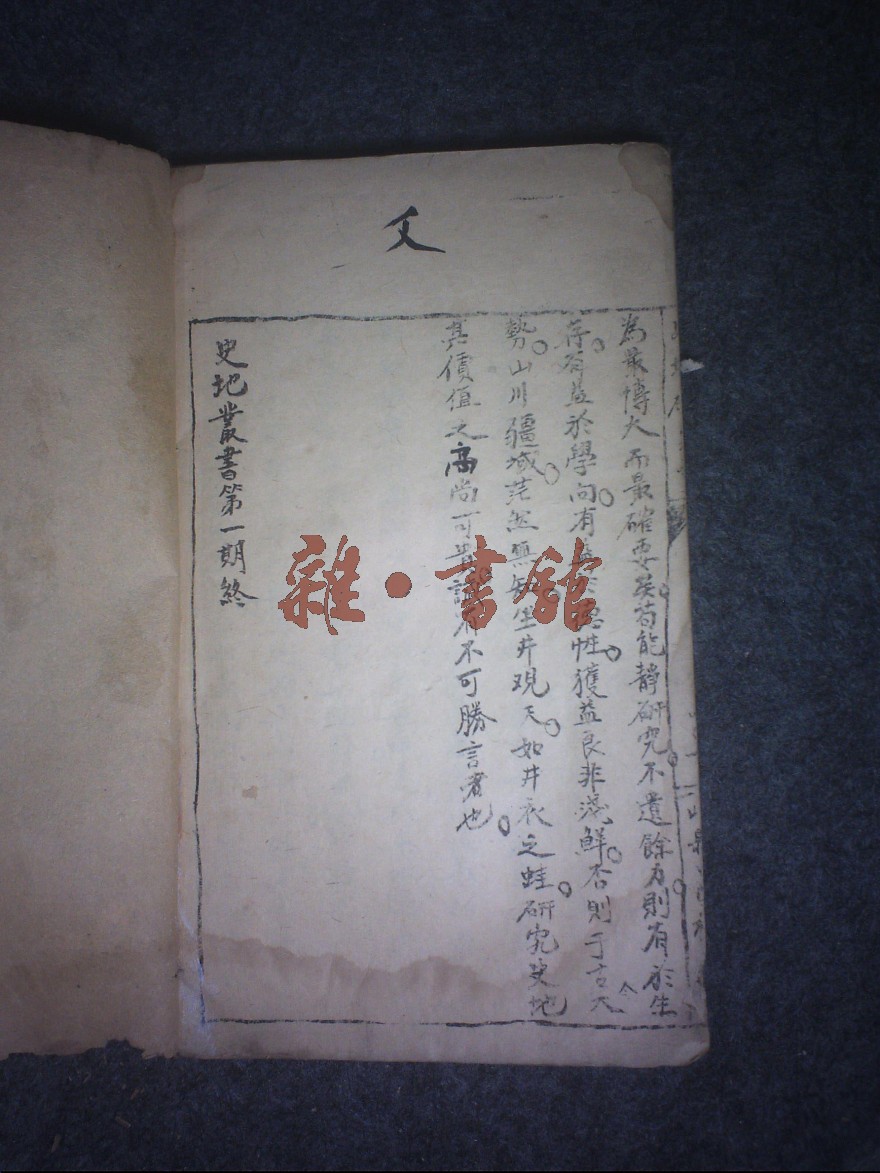 攵
為最博大而最確要矣苟能靜研究不遺餘力則有於生
存有益於學问有益於德性獲益良非淺鮮否則于古今大
勢山川疆域茫然無知坐井观天如井底之蛙研究史地
其價值之高尚可貴誠有不可勝言者也
史地叢書第一期終
雜·書館